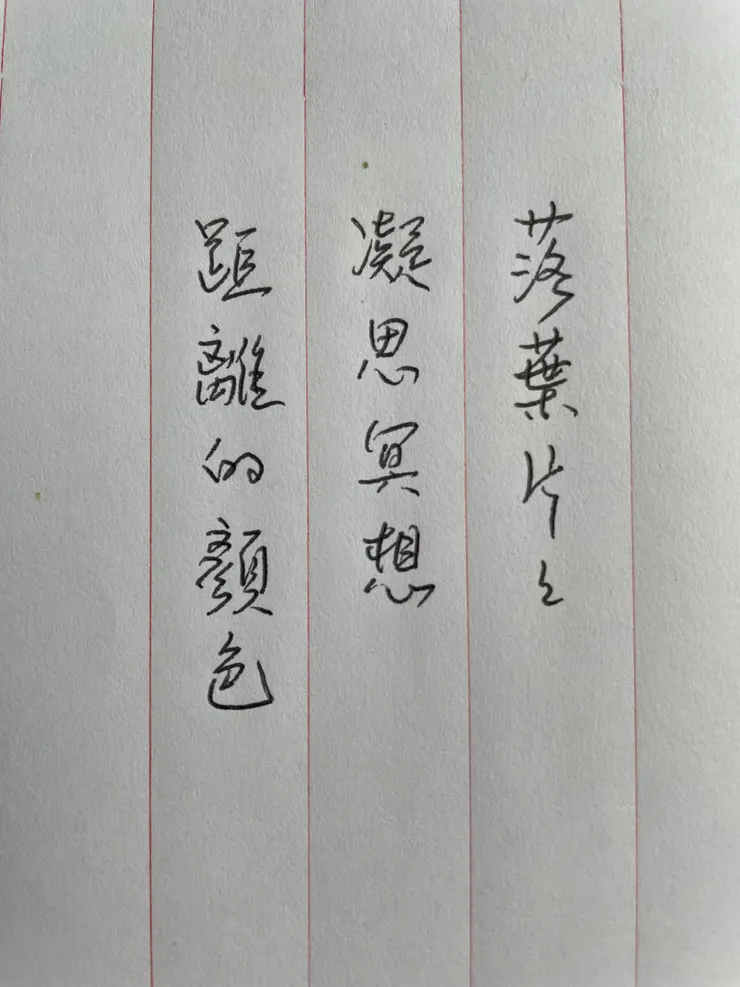 落葉片々
凝思冥想
距離的顏色